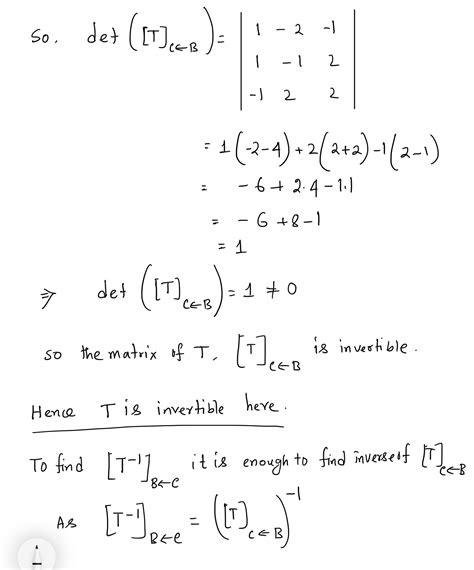 So, det ([T]C←B) = | 1 -2 -1 |
| 1 -1 2 |
| -1 2 2 |
= 1(-2-4) + 2(2+2) -1(2-1)
= -6 + 2.4 - 1.1
= -6 +8 -1
= 1
⇒ det ([T]C←B) = 1 ≠ 0
so the matrix of T, [T]C←B is invertible.
Hence T is invertible here.
To find [T-1]B←C it is enough to find inverse of [T]C←B
As [T-1]B←C = ([T]C←B)-1